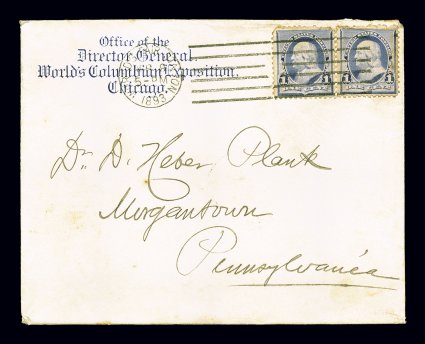 Office of the
Director General
World's Columbian Exposition,
Chicago.
1893
1 1
Dr. D. Heber Plank
Morgantown
Pennsylvania